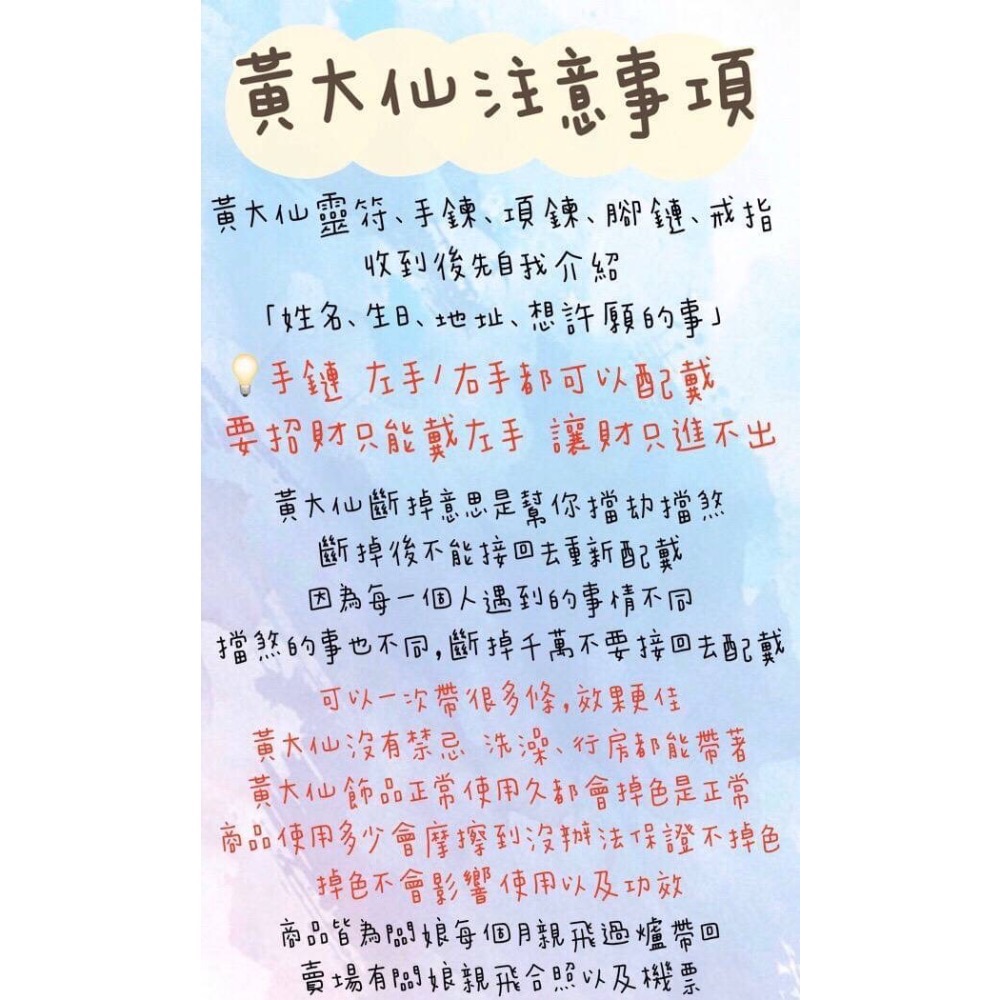 黃大仙注意事項
黃大仙靈符、手鍊、項鍊、腳鏈、戒指
收到後先自我介紹
「姓名、生日、地址、想許願的事」
手鏈 左手/右手都可以配戴
要招財只能戴左手 讓財只進不出
黃大仙斷掉意思是幫你擋劫擋煞
斷掉後不能接回去重新配戴
因為每一個人遇到的事情不同
擋煞的事也不同,斷掉千萬不要接回去配戴
可以一次帶很多條,效果更佳
黃大仙沒有禁忌 洗澡、行房都能帶著
黃大仙飾品正常使用久都會掉色是正常
商品使用多少會摩擦到沒辦法保證不掉色
掉色不會影響使用以及功效
商品皆為闆娘每個月親飛過爐帶回
賣場有闆娘親飛合照以及機票